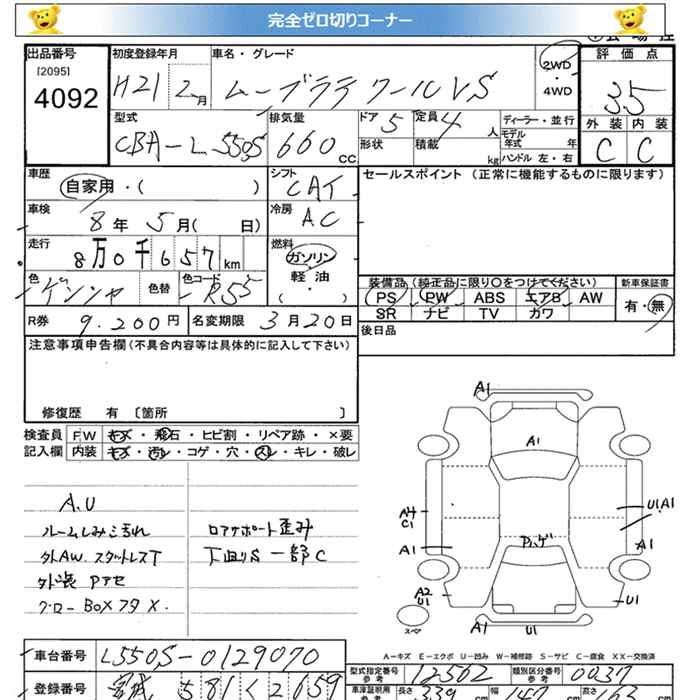 完全ゼロ切りコーナー
出品番号 初度登録年月 車名・グレード 2WD・4WD 評価点
[2095]
4092 H21 2月 ムーブラテ クールVS 3.5
型式 排気量 ドア 5 定員 4人 ディーラー・並行 外装 内装
CBA-L550S 660cc 形状 積載 kg モデル年式 年 C C
ハンドル 左・右
車歴 シフト セールスポイント(正常に機能するものに限ります)
自家用・( ) CAT
車検 8年 5月( 日) 冷房 AC
走行 8万0千657km 燃料 ガソリン・軽油( )
色 色替 色コード R55
装備品(純正品に限り○をつけてください) 新車保証書
PS PW ABS エアB AW 有・無
SR ナビ TV カワ
R券 9.200円 名変期限 3月20日 後日品
注意事項申告欄(不具合内容等は具体的に記入して下さい)
修復歴 有 [箇所 ]
検査員記入欄 FW キズ・飛石・ヒビ割・リペア跡・×要
内装 キズ・汚レ・コゲ・穴・スレ・キレ・破レ
A.U
ルームしみ汚れ ロアサポート歪み
外AW.スタットレスT 下廻りS 一部C
外装 Pアセ
グローBOXフタ×.
A1
A1
A4
C1
U1.A1
A1
A1
Pハゲ
A2
U1
U1
スペア
A1
U1
A-キズ E-エクボ U-凹み W-補修跡 S-サビ C-腐食 XX-交換済
車台番号 L550S-0129070 型式指定番号 参考 12562 類別区分番号 参考 0037
登録番号 宮城 581 く 2659 車庫証明用 参考 長さ 339cm 幅 147 高さ 163cm